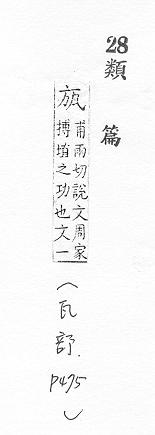 28
類篇
瓬
甫兩切說文周家
搏埴之功也文一
(瓦部.
p475)